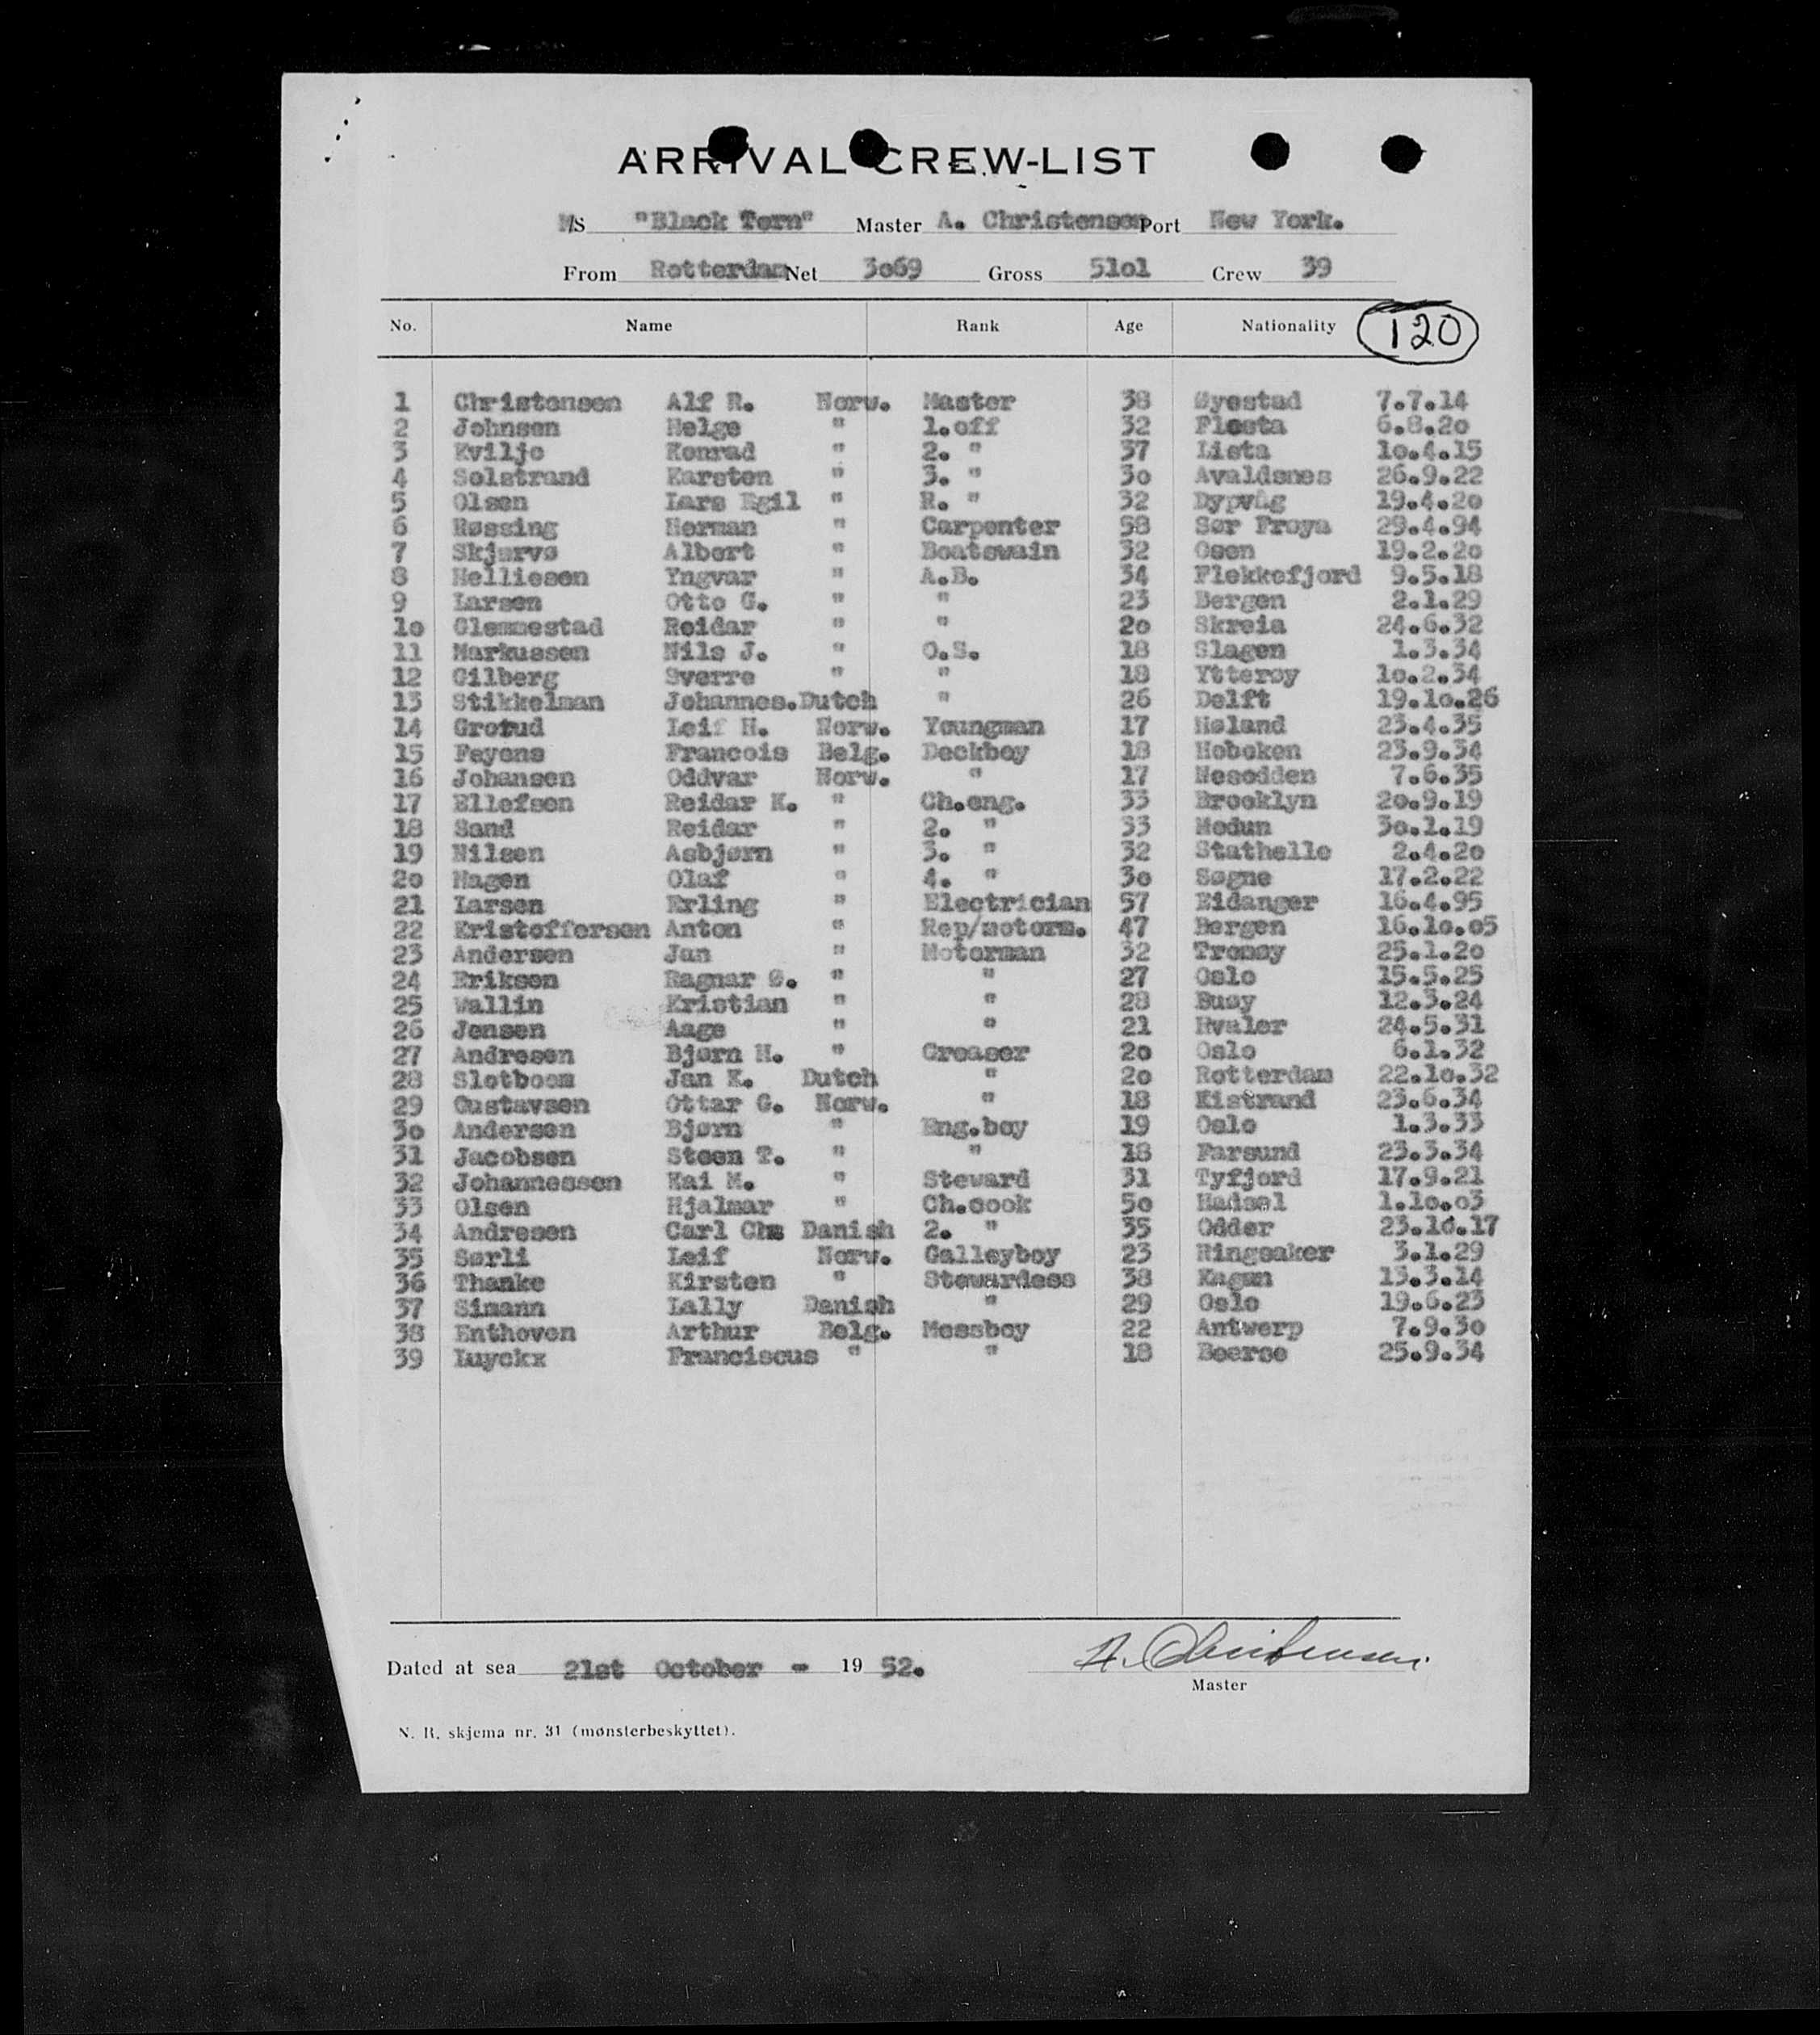 ARRIVAL CREW-LIST
M/S "Black Tern" Master A. Christensen Port New York.
From Rotterdam Net 3o69 Gross 51o1 Crew 39
No. Name Rank Age Nationality 120
1 Christensen Alf R. Norw. Master 38 Øyestad 7.7.14
2 Johnsen Helge " 1.off 32 Flosta 6.8.2o
3 Kviljo Konrad " 2. " 37 Lista 1o.4.15
4 Solstrand Karsten " 3. " 3o Avaldsnes 26.9.22
5 Olsen Lars Egil " R. " 32 Dypvåg 19.4.2o
6 Røssing Herman " Carpenter 58 Sør Frøya 29.4.94
7 Skjærvø Albert " Boatswain 32 Osen 19.2.2o
8 Helliesen Yngvar " A.B. 34 Flekkefjord 9.5.18
9 Larsen Otto G. " " 23 Bergen 2.1.29
1o Glemmestad Reidar " " 2o Skreia 24.6.32
11 Markussen Nils J. " O.S. 18 Slagen 1.3.34
12 Gilberg Sverre " " 18 Ytterøy 1o.2.34
13 Stikkelman Johannes.Dutch " 26 Delft 19.1o.26
14 Grorud Leif H. Norw. Youngman 17 Høland 23.4.35
15 Feyens Francois Belg. Deckboy 18 Hoboken 23.9.34
16 Johansen Oddvar Norw. " 17 Nesodden 7.6.35
17 Ellefsen Reidar K. " Ch.eng. 33 Brooklyn 2o.9.19
18 Sand Reidar " 2. " 33 Modum 3o.1.19
19 Nilsen Asbjørn " 3. " 32 Stathelle 2.4.2o
2o Hagen Olaf " 4. " 3o Søgne 17.2.22
21 Larsen Erling " Electrician 57 Eidanger 16.4.95
22 Kristoffersen Anton " Rep/motorm. 47 Bergen 16.1o.o5
23 Andersen Jan " Motorman 32 Tromøy 25.1.2o
24 Eriksen Ragnar Ø. " " 27 Oslo 15.5.25
25 Wallin Kristian " " 28 Buøy 12.3.24
26 Jensen Aage " " 21 Hvaler 24.5.31
27 Andresen Bjørn H. " Greaser 2o Oslo 6.1.32
28 Slotboom Jan K. Dutch " 2o Rotterdam 22.1o.32
29 Gustavsen Ottar G. Norw. " 18 Kistrand 23.6.34
3o Andersen Bjørn " Eng.boy 19 Oslo 1.3.33
31 Jacobsen Steen T. " " 18 Farsund 23.3.34
32 Johannessen Kai M. " Steward 31 Tyfjord 17.9.21
33 Olsen Hjalmar " Ch.cook 5o Hadsel 1.1o.o3
34 Andresen Carl Chs Danish 2. " 35 Odder 23.1o.17
35 Sørli Leif Norw. Galleyboy 23 Ringsaker 3.1.29
36 Thanke Kirsten " Stewardess 38 Kagen 13.3.14
37 Simann Lally Danish " 29 Oslo 19.6.23
38 Enthoven Arthur Belg. Messboy 22 Antwerp 7.9.3o
39 Luyckx Franciscus " " 18 Beerse 25.9.34
Dated at sea 21st October - 19 52. A. Christensen.
Master
N. R. skjema nr. 31 (mønsterbeskyttet).